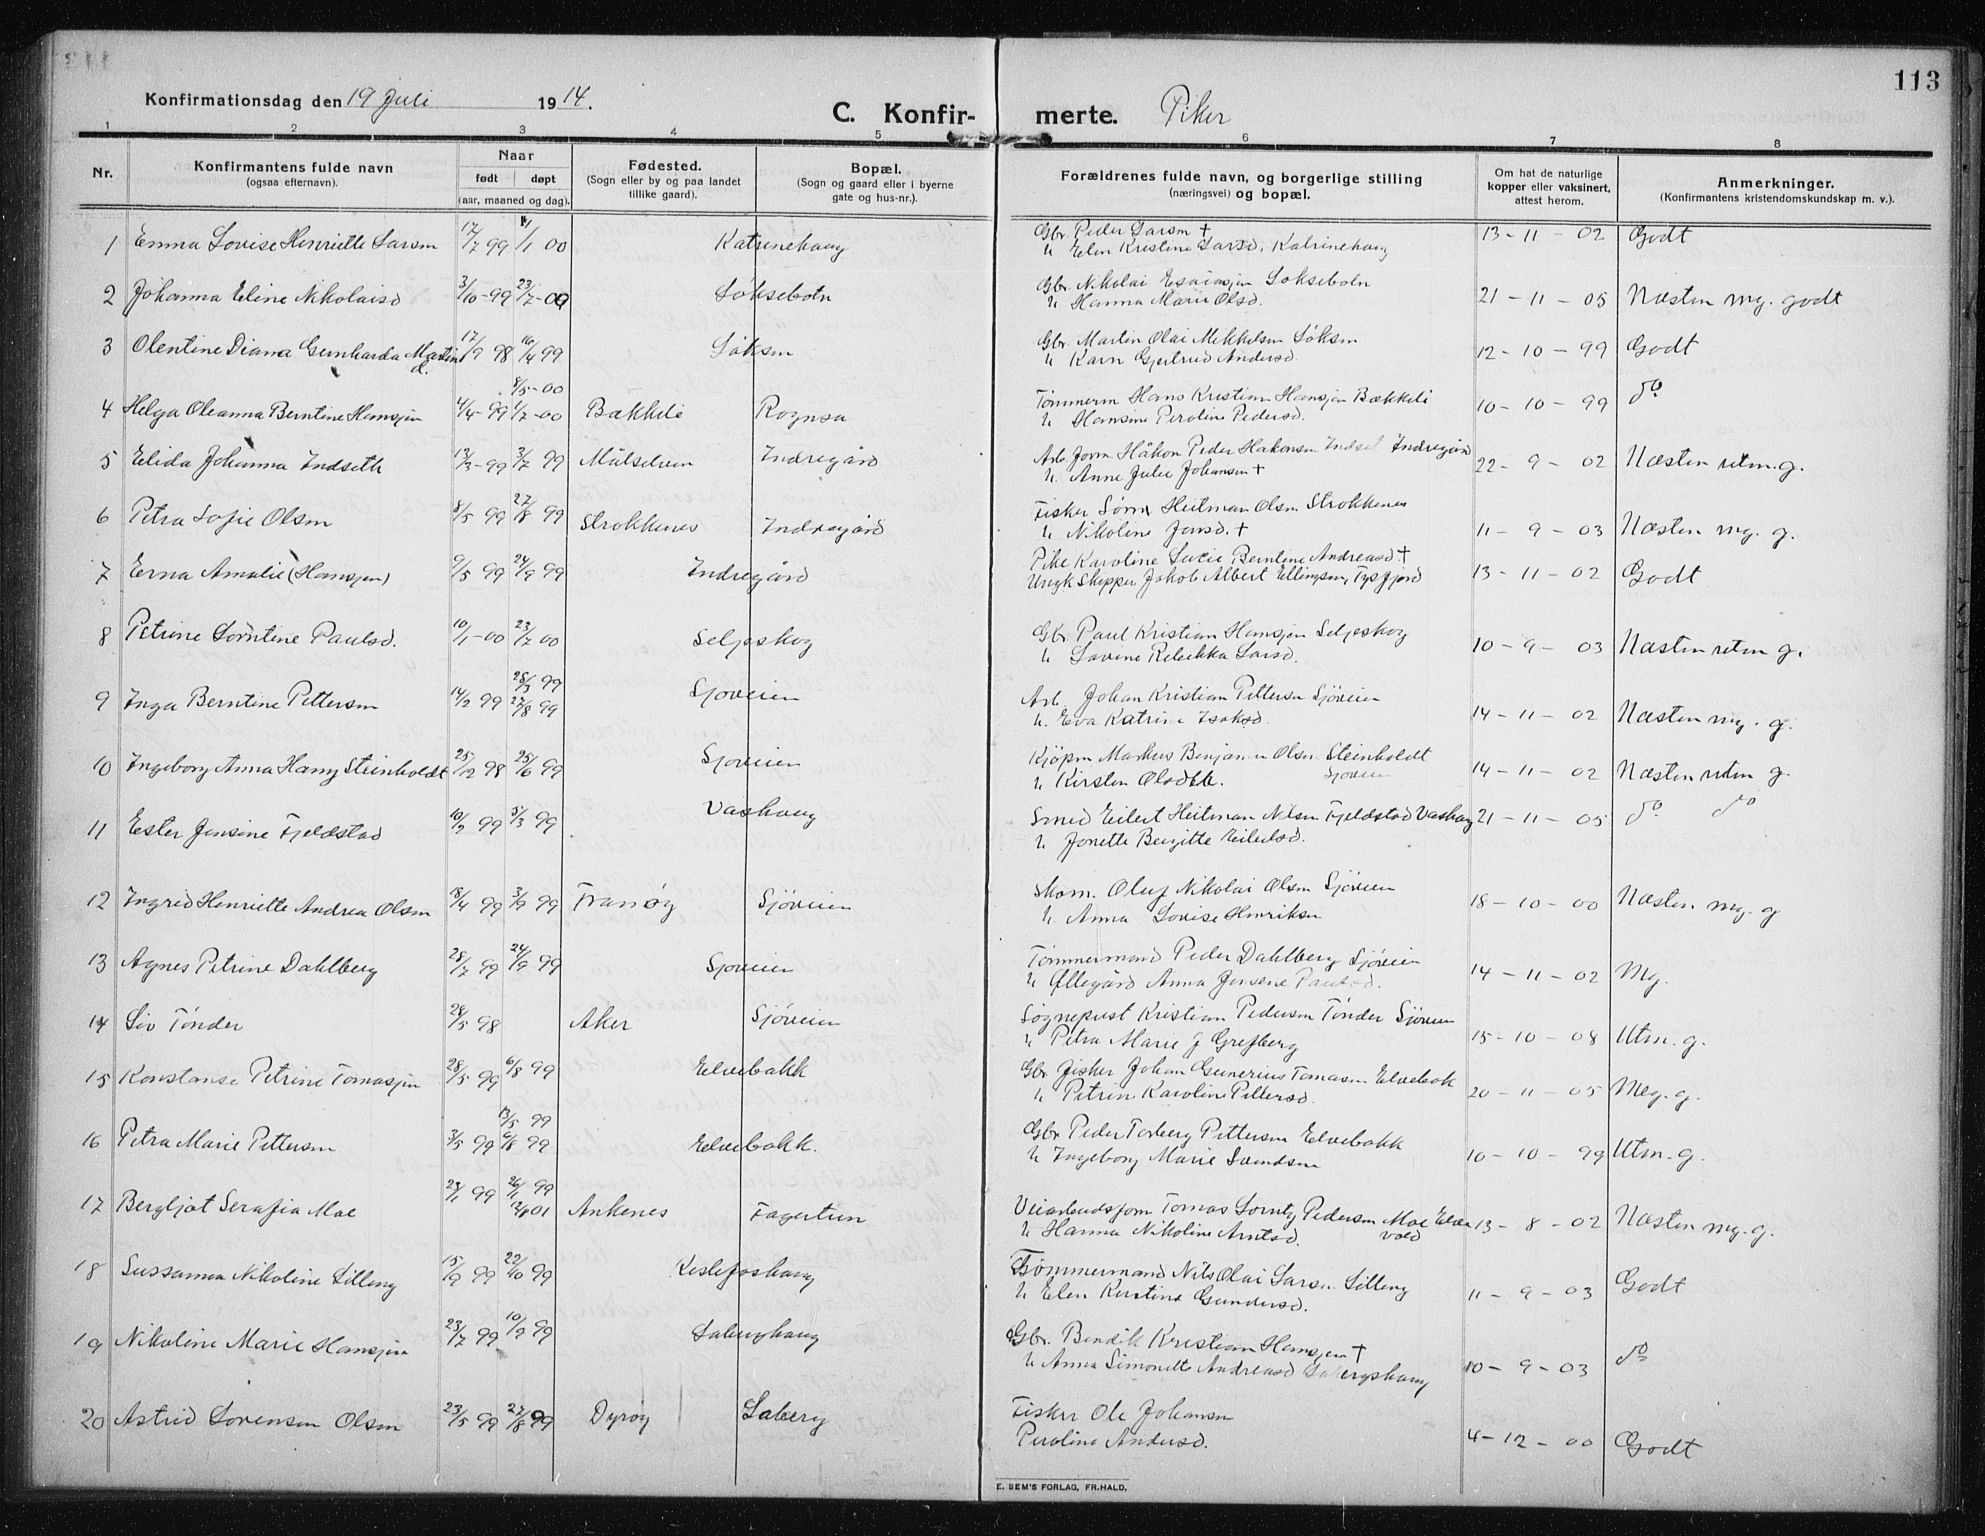 113
Konfirmationsdag den 19 Juli 1914.
C. Konfirmerte. Piker
1 2 3 4 5 6 7 8
Nr.
Konfirmantens fulde navn
(ogsaa efternavn).
Naar
født døpt
(aar, maaned og dag).
Fødested.
(Sogn eller by og paa landet
tillike gaard).
Bopæl.
(Sogn og gaard eller i byerne
gate og hus-nr.).
Forældrenes fulde navn, og borgerlige stilling
(næringsvei) og bopæl.
Om hat de naturlige
kopper eller vaksinert,
attest herom.
Anmerkninger.
(Konfirmantens kristendomskundskap m. v.).
1 Emma Lovise Henriette Larsen 17/7 99 1/1 00 Katrinehaug Gbr. Peder Larsen † 13-11-02 Godt
h Elen Kristine Larsd. Katrinehaug
2 Johanna Eline Nikolaisd 3/10-99 23/7-00 Löksebotn Gbr. Nikolai Esaiassen Löksebotn 21-11-05 Næsten mg. godt
h Hanna Marie Olsd.
3 Olentine Diana Gunharda Martind. 17/9 98 16/4 99 Löksen Gbr. Martin Olai Mikkelsen Löksen 12-10-99 Godt
h Karn Gjertrud Andersd.
8/5-00
4 Helga Oleanna Berntine Hansjen 4/4-99 1/7-00 Bækkeli Rognsa Tömmerm Hans Kristian Hansjen Bækkeli 10-10-99 do
h Hansine Peroline Pedersd.
5 Elida Johanna Indseth 13/3-99 3/7 99 Målselven Indregård Arb. Jorn Håkon Peder Hakonsen Indset Indregård 22-9-02 Næsten utm. g.
h. Anne Julie Johansen †
6 Petra Sofie Olsen 8/5 99 27/8 99 Strokkenes Indregård Fisker Sörn Heitman Olsen Strokkenes 11-9-03 Næsten mg. g.
h Nikoline Jensd. †
7 Erna Amalie (Hansjen) 9/5 99 24/9 99 Indregård Pike Karoline Lucie Berntine Andreasd † 13-11-02 Godt
Ungk Skipper Jakob Albert Ellingsen, Tysfjord
8 Petrine Lorntine Paulsd. 10/1-00 23/7 00 Seljeskog Gbr Paul Kristian Hansjen Seljeskog 10-9-03 Næsten utm g.
h Lovine Rebekka Larsd.
28/3 99
9 Inga Berntine Pettersen 14/2 99 27/8 99 Sjoveien Arb. Johan Kristian Pettersen Sjöveien 14-11-02 Næsten mg. g.
h. Eva Katrine Isaksd.
10 Ingeborg Anna Hany Steinholdt 25/12 98 25/6 99 Sjoveien Kjöpm Markus Benjamin Olsen Steinholdt 14-11-02 Næsten utm g.
h Kirsten Olsdtt. Sjoveien
11 Ester Jensine Fjeldstad 10/2 99 5/3 99 Vashaug Smed Eilert Heitman Nilsen Fjeldstad Vashaug 21-11-05 do do
h Jonette Bergitte Eilertsd.
12 Ingrid Henriette Andrea Olsen 18/4 99 3/9 99 Tranöy Sjöveien Skom. Oluf Nikolai Olsen Sjöveien 18-10-00 Næsten mg. g
h. Anna Lovise Henriksen
13 Agnes Petrine Dahlberg 28/7 99 24/9 99 Sjoveien Tömmermand Peder Dahlberg Sjöveien 14-11-02 Mg.
h Øllegård Anna Jensine Paulsd.
14 Liv Tönder 28/5 98 Aker Sjöveien Sognepræst Kristian Pedersen Tönder Sjöveien 15-10-08 Utm. g.
h Petra Marie J Grefberg
15 Konstanse Petrine Tomasjen 28/5 99 6/8 99 Elvebakk Gbr Fisker Johan Gunerius Tomasen Elvebak 20-11-05 Meg. g.
h Petrin Karoline Pettersd.
13/5 99
16 Petra Marie Pettersen 3/5 99 6/8 99 Elvebakk. Gbr Peder Torberg Pettersen Elvebakk 10-10-99 Utm. g.
h Ingeborg Marie
17 Bergljot Serafia Moe 23/1 99 26/1 99 Ankenes Fagertun Veiarbeidsform Tomas Lorntz Pedersen Moe Elvevold 13-8-02 Næsten mg. g.
h Hanna Nikoline Arntsd.
18 Sussanna Nikoline Lilleng 15/9 99 22/10 99 Kistefoshaug Tömmermand Nils Olai Larsen Lilleng 11-9-03 Godt
h Elen Kirstine Gundersd.
19 Nikoline Marie Hansjen 23/7 99 10/9 99 Laberghaug Gbr. Bendik Kristian Hansjen † 10-9-03 do
h Anna Simonette Andreasd Labergshaug
20 Astrid Sorensen Olsen 23/5 99 27/8 99 Dyroy Laberg Fisker Ole Johansen 4-12-00 Godt
Peroline Andersd.
E. SEM'S FORLAG, FR.HALD.